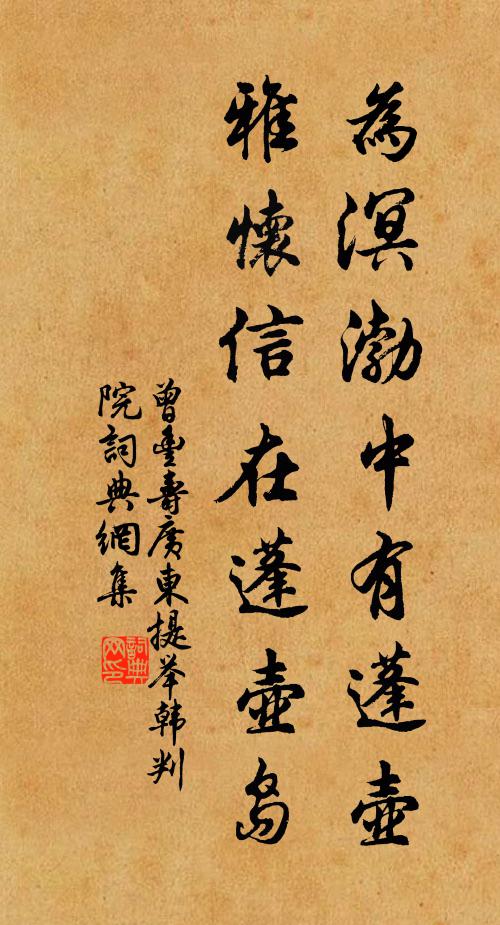 為溟渤中有蓬壺
雅懷信在蓬壺島
曾豐壽廣東提舉韓判
院詞典網集
詞典网印